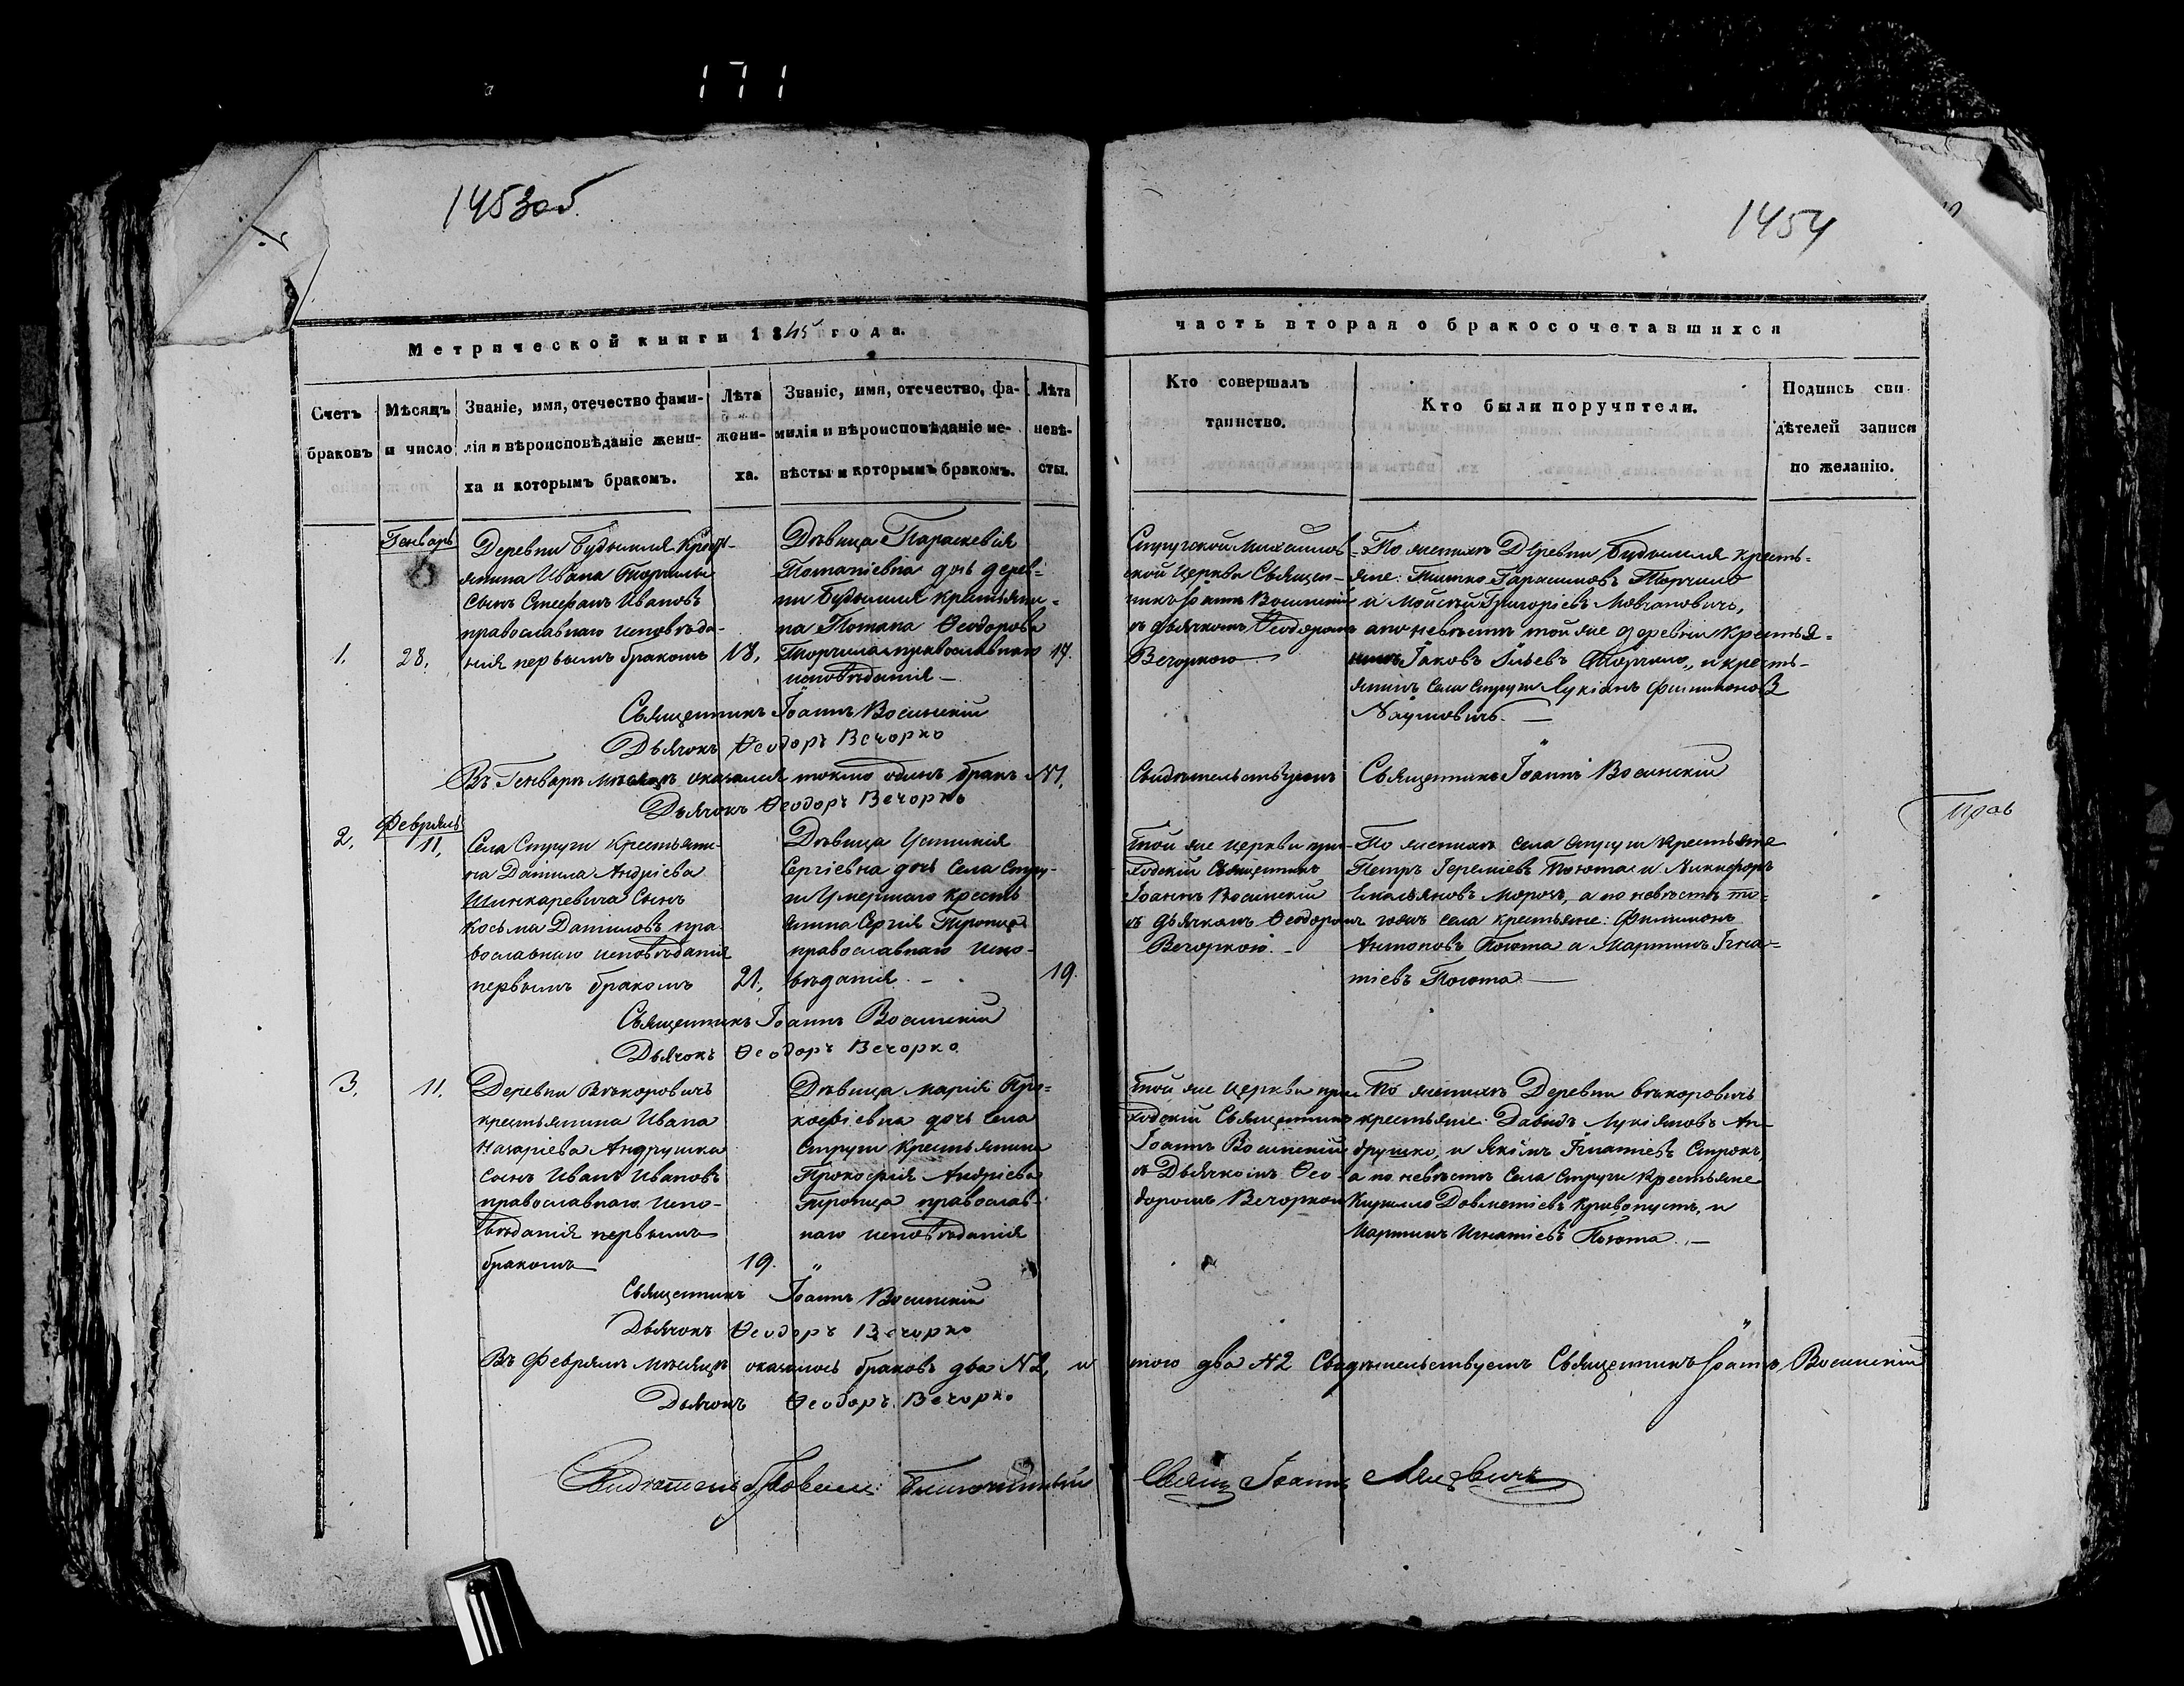 171
1453об.
1454
Метрической книги 1845 года.
часть вторая о бракосочетавшихся
Счетъ браковъ
Мѣсяцъ и число
Званіе, имя, отечество фами-
лія и вѣроисповѣданіе жени-
ха и которымъ бракомъ.
Лѣта жени-
ха.
Званіе, имя, отечество, фа-
милія и вѣроисповѣданіе не-
вѣсты и которымъ бракомъ.
Лѣта невѣ-
сты.
Кто совершалъ
таинство.
Кто были поручители.
Подпись сви-
дѣтелей записи
по желанію.
1.
Генварь
28.
Деревни Будымля Крест-
янина Ивана Торчилы
Сынъ Стефанъ Ивановъ
православнаго исповѣда-
нія первымъ бракомъ
18.
Дѣвица Параскевія
Потапіевна дочь дерев-
ни Будымля крестьяни-
на Потапа Ѳеодорова
Торчила православнаго
исповѣданія —
17.
Стругской Михайлов-
ской церкви Священ-
никъ Іоаннъ Восинскій
съ дьячкомъ Ѳеодоромъ
Вечоркою
По женихѣ Деревни Будымля кресть-
яне: Тишко Гарасимовъ Торчило
и Мойсей Григоріевъ Мовчановичъ,
а по невѣстѣ той же деревни Крестья-
нинъ Іаковъ Ильевъ Торчило, и кресть-
янинъ Села Струги Лукіанъ Филимонов
Наумовичъ. —
Священникъ Іоаннъ Восинскій
Дьячокъ Ѳеодоръ Вечорко
Въ Генварѣ мѣсяцѣ оказался токмо одинъ бракъ №1.
Свидѣтельствуетъ Священникъ Іоаннъ Восинскій
Дьячокъ Ѳеодоръ Вечорко
2.
Февраль
11.
Села Струги Крестьяни-
на Даніила Андріева
Шинкаревича Сынъ
Косьма Даніиловъ пра-
вославнаго исповѣданія
первымъ бракомъ
21.
Дѣвица Устинія
Сергіевна дочь Села Стру-
ги Умершаго Кресть-
янина Сергія Тропца
православнаго испо-
вѣданія. —
19.
Той же церкви при-
ходскій Священникъ
Іоаннъ Восинскій
съ дьячкомъ Ѳеодоромъ
Вечоркою. —
По женихѣ села Струги Крестьяне
Петръ Іереміевъ Поюта и Никифоръ
Емельяновъ Морозъ, а по невѣстѣ то-
гожъ села крестьяне: Филимонъ
Антоновъ Поюта и Мартинъ Игна-
тіевъ Поюта —
Священникъ Іоаннъ Восинскій
Дьячокъ Ѳеодоръ Вечорко.
3.
11.
Деревни Вѣкоровичъ
крестьянина Ивана
Назаріева Андрушка
сынъ Иванъ Ивановъ
православнаго испо-
вѣданія первымъ
бракомъ
19.
Дѣвица Марія Про-
кофіевна дочь Села
Струги Крестьянина
Прокофія Андріева
Тропца православ-
наго исповѣданія
Той же церкви при-
ходскій Священникъ
Іоаннъ Восинскій
съ Дьячкомъ Ѳео-
доромъ Вечоркою
По женихѣ Деревни Вѣкоровичъ
крестьяне: Давидъ Лукіяновъ Ан-
друшко, и Якимъ Игнатіевъ Строкъ,
а по невѣстѣ Села Струги Крестьяне
Кирилло Довметіевъ Кривопустъ, и
Мартинъ Игнатіевъ Поюта. —
Священникъ Іоаннъ Восинскій
Дьячокъ Ѳеодоръ Вечорко
Въ Февралѣ мѣсяцѣ оказалось браковъ два №2, и того два №2 Свидѣтельствуетъ Священникъ Іоаннъ Восинскій
Дьячокъ Ѳеодоръ Вечорко
Благочинный Свящ Іоаннъ